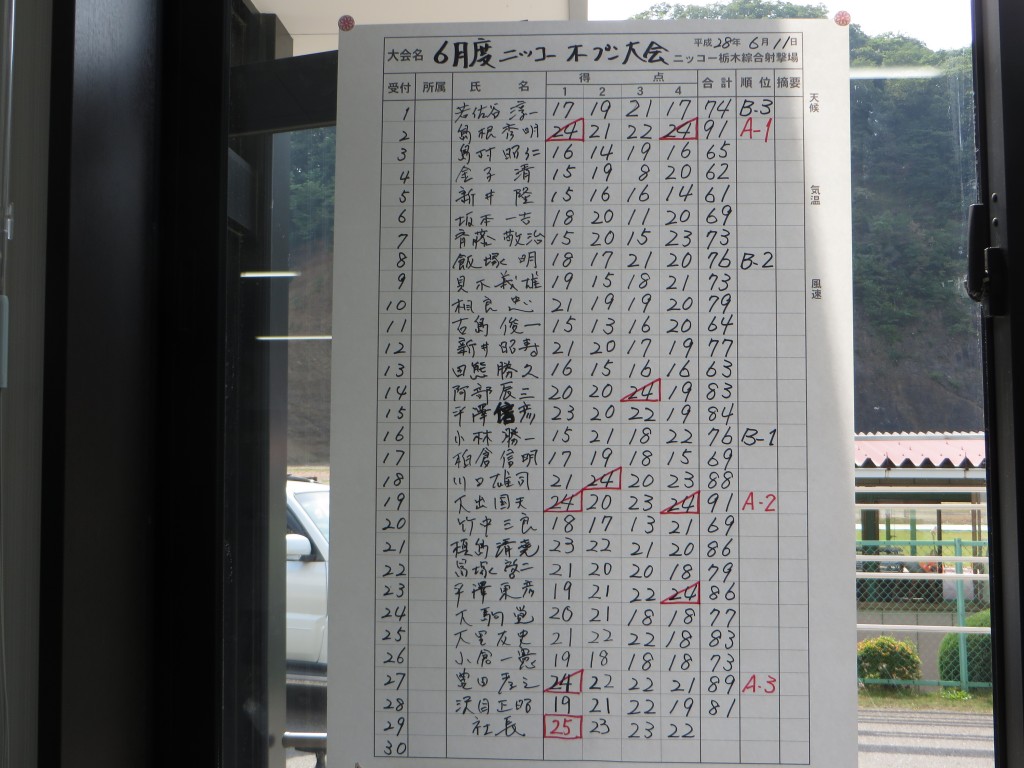 大会名 6月度ニッコーオープン大会 平成28年6月11日
ニッコー栃木綜合射撃場
受付 所属 氏名 得点 合計 順位 摘要
1 2 3 4
1 岩佐谷 淳一 17 19 21 17 74 B-3
2 島根 秀明 24 21 22 24 91 A-1
3 島村 昭仁 16 14 19 16 65
4 金子 清 15 19 8 20 62
5 新井 隆 15 16 16 14 61
6 坂本 一吉 18 20 11 20 69
7 斉藤 敬治 15 20 15 23 73
8 飯塚 明 18 17 21 20 76 B-2
9 見木 義雄 19 15 18 21 73
10 相良 忠 21 19 19 20 79
11 古島 俊一 15 13 16 20 64
12 新井 昭寿 21 20 17 19 77
13 田熊 勝久 16 15 16 16 63
14 阿部 辰三 20 20 24 19 83
15 平澤 信彦 23 20 22 19 84
16 小林 勝一 15 21 18 22 76 B-1
17 柏倉 信明 17 19 18 15 69
18 川口 雄司 21 24 20 23 88
19 大出 国夫 24 20 23 24 91 A-2
20 竹中 三良 18 17 13 21 69
21 島 23 22 21 20 86
22 塚 21 20 20 18 79
23 平澤 栄彦 19 21 22 24 86
24 大駒 20 21 18 18 77
25 大里 友史 21 22 22 18 83
26 小倉 一 19 18 18 18 73
27 豊田 24 22 22 21 89 A-3
28 正昭 19 21 22 19 81
29 社長 25 23 23 22
30
天候
気温
風速